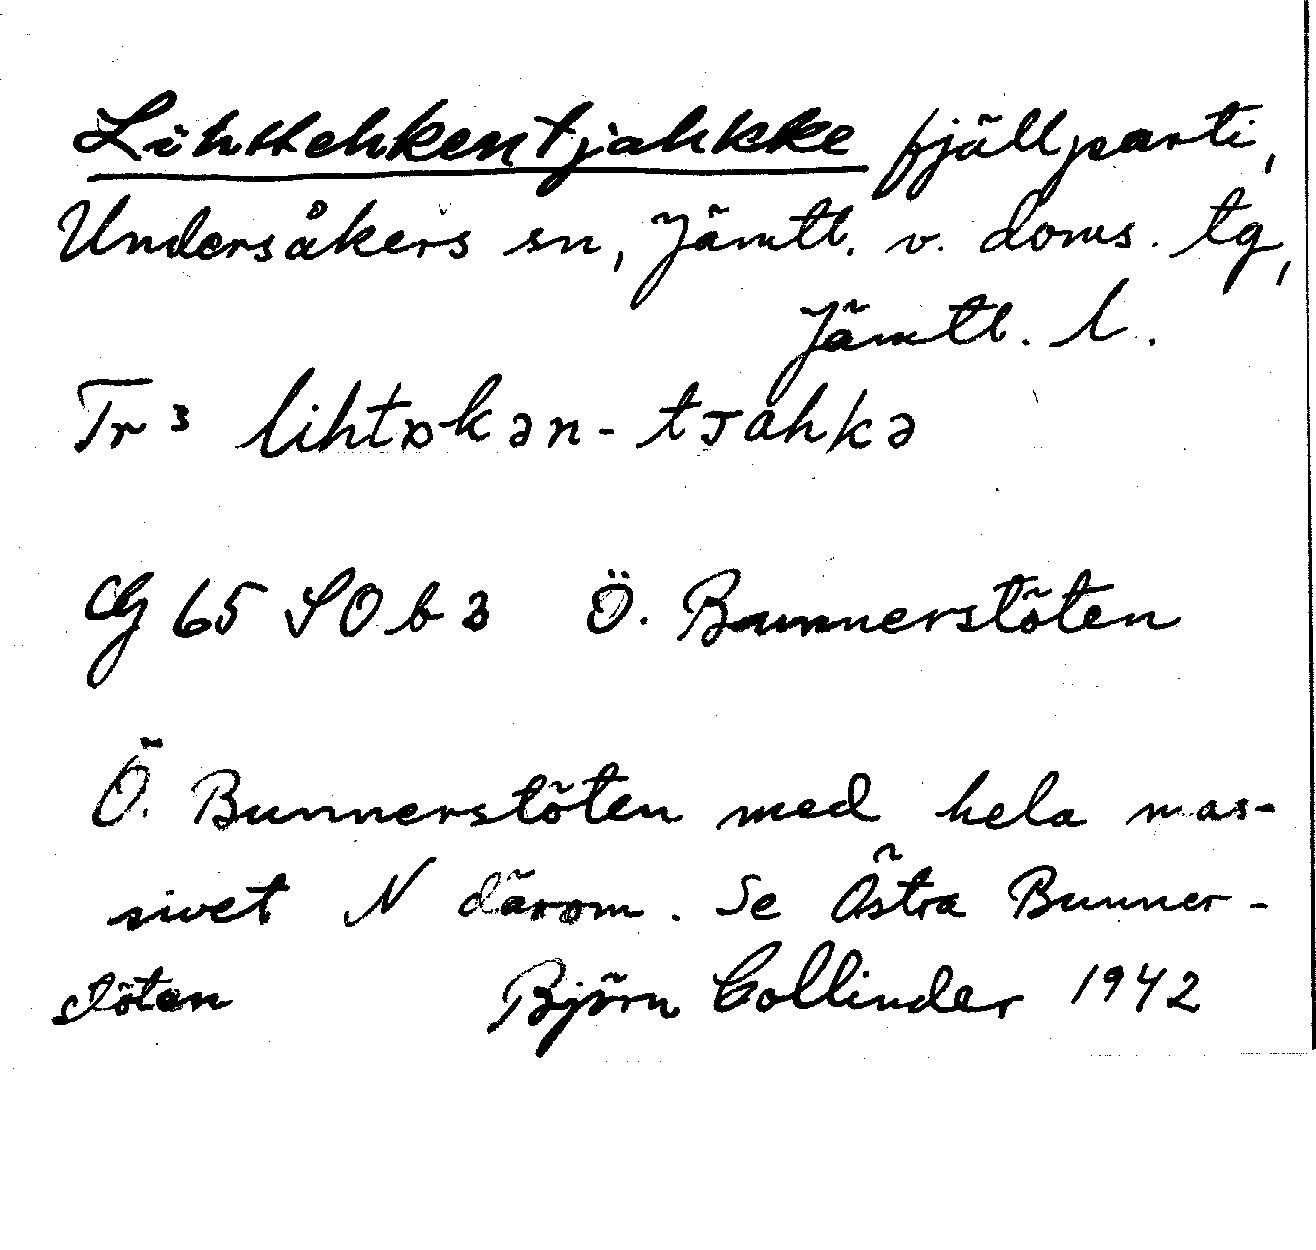 Lihttehkentjahkke fjällparti,
Undersåkers sn, Jämtl. v. doms. tg,
Jämtl. l.
Tr 3 lihtɒkən-tjahkə
Cg 65 SO b 3 Ö. Bunnerstöten
Ö. Bunnerstöten med hela mas-
sivet N därom. Se Östra Bunner-
stöten Björn Collinder 1942